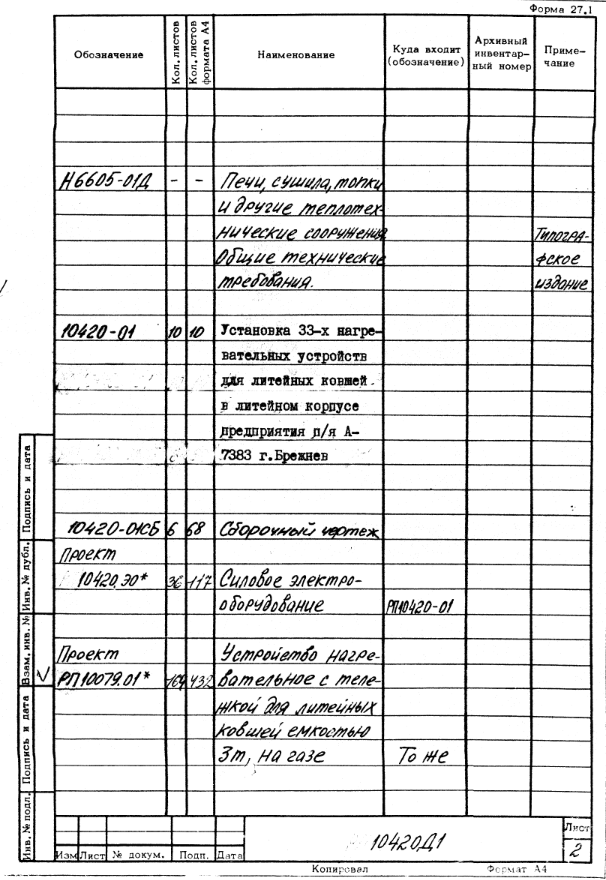 Форма 27.1
Обозначение
Кол. листов
Кол. листов формата А4
Наименование
Куда входит (обозначение)
Архивный инвентар-ный номер
Приме-чание
Н6605-01Д - - Печи, сушила, топки
и другие теплотех-
нические сооружения
Типогра-
Общие технические
фское
требования.
издание
10420-01 10 10 Установка 33-х нагре-
вательных устройств
для литейных ковшей
в литейном корпусе
предприятия п/я А-
7383 г.Брежнев
10420-01СБ 6 68 Сборочный чертеж
Проект
10420.ЭО* 36 117 Силовое электро-
оборудование РП10420-01
Проект Устройство нагре-
РП10079.01* 164 432 вательное с теле-
жкой для литейных
ковшей емкостью
3т, на газе То же
Подпись и дата
Инв. № дубл.
Взам. инв. №
Подпись и дата
Инв. № подл.
Изм Лист № докум. Подп. Дата
10420Д1
Лист
2
Копировал
Формат А4